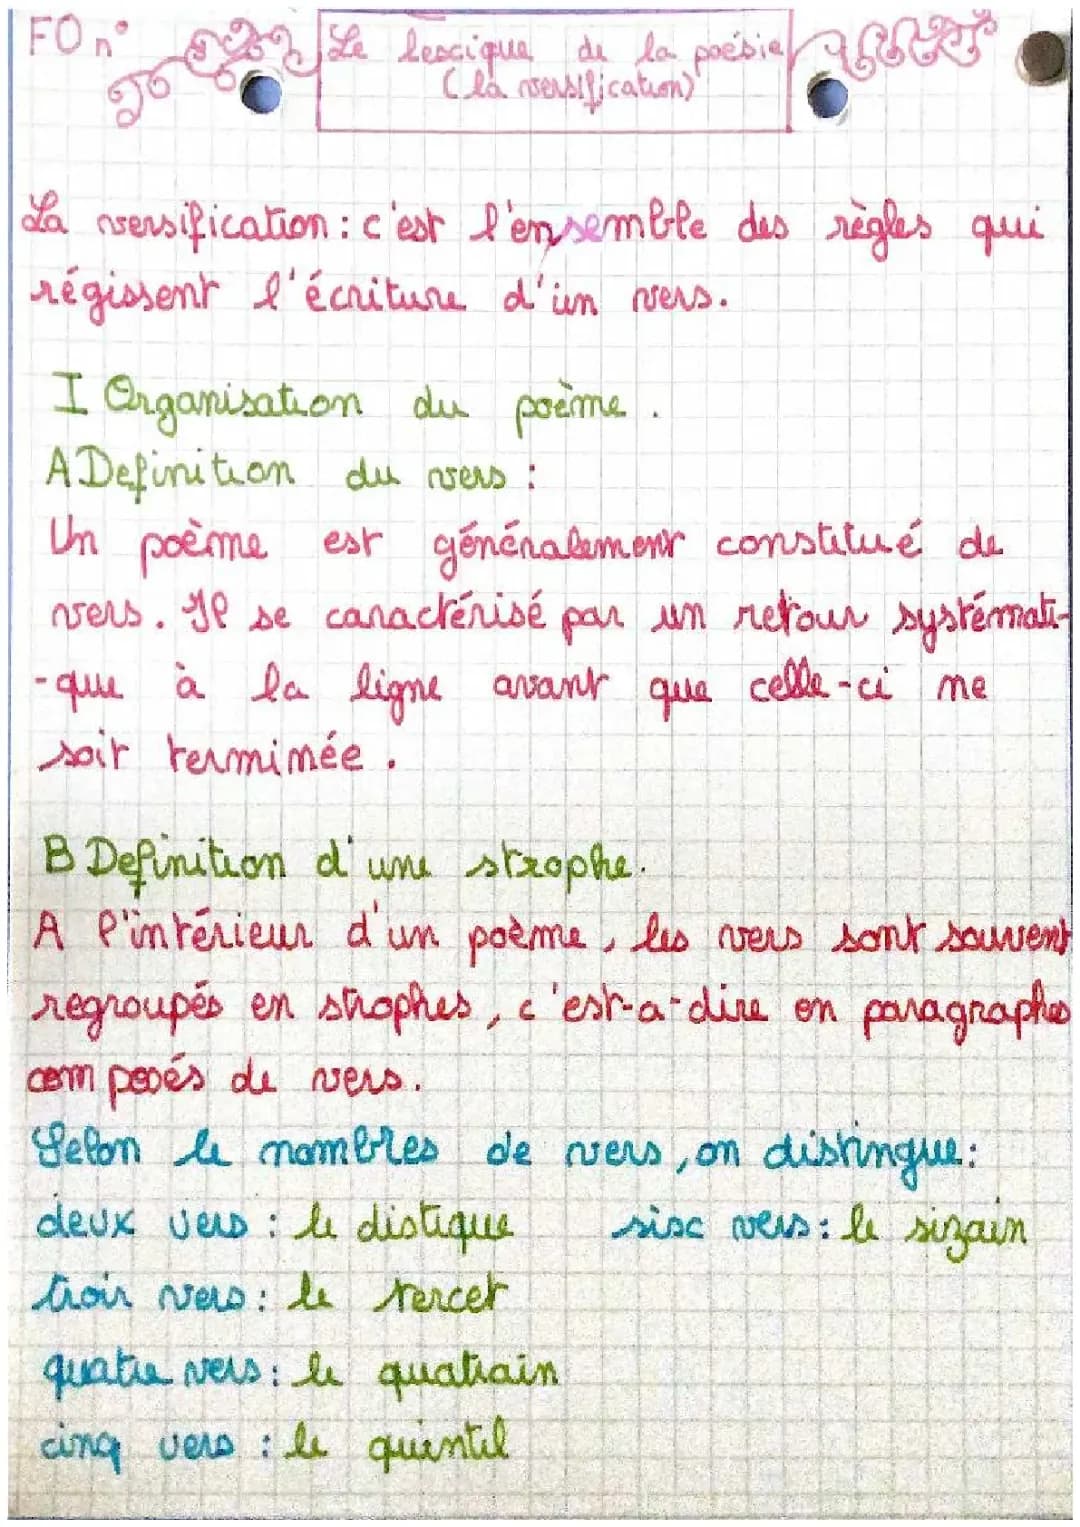 FO n°
Le lescique de la poésie
(la versification)
La versification : c'est l'ensemble des règles qui
régissent l'écriture d'un vers.
I Organisation du poème.
A Definition du vers :
Un poème est généralement constitué de
vers. Il se caractérisé par un retour systémati-
-que à la ligne avant que celle-ci ne
soit terminée.
B Definition d'une strophe.
A l'intérieur d'un poème, les vers sont souvent
regroupés en strophes, c'est-a-dire en paragraphes
composés de vers.
Selon le nombres de vers, on distingue :
deux vers : le distique sisc vers : le sizain
troir vers : le tercet
quatre vers : le quatrain
cinq vers : le quintil